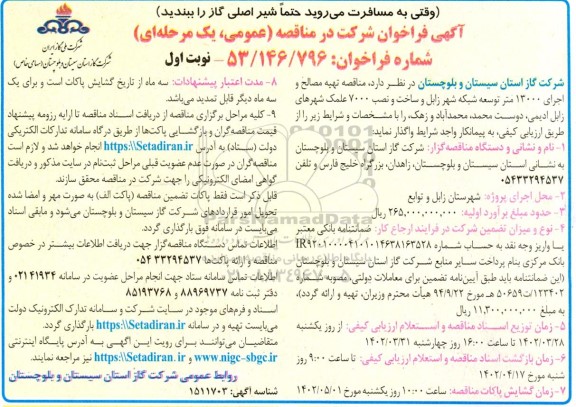 (وقتی به مسافرت می‌روید حتماً شیر اصلی گاز را ببندید)
آگهی فراخوان شرکت در مناقصه (عمومی، یک مرحله‌ای)
شماره فراخوان: ۵۳/۱۴۶/۷۹۶ – نوبت اول
شرکت ملی گاز ایران
شرکت گاز استان سیستان و بلوچستان (سهامی خاص)
شرکت گاز استان سیستان و بلوچستان در نظر دارد، مناقصه تهیه مصالح و
اجرای ۱۳۰۰۰ متر توسعه شبکه شهر زابل و ساخت و نصب ۷۰۰۰ علمک شهرهای
زابل ادیمی، دوست محمد، محمدآباد و زهک، را با مشخصات و شرایط زیر را از
طریق ارزیابی کیفی، به پیمانکار واجد شرایط واگذار نماید:
۱- نام و نشانی و دستگاه مناقصه‌گزار: شرکت گاز استان سیستان و بلوچستان
به نشانی استان سیستان و بلوچستان، زاهدان، بزرگراه خلیج فارس و تلفن
۰۵۴۳۳۲۹۴۵۳۷
۲- محل اجرای پروژه: شهرستان زابل و توابع
۳- حدود مبلغ برآورد اولیه: ۲۶۵,۰۰۰,۰۰۰,۰۰۰ ریال
۴- نوع و میزان تضمین شرکت در فرایند ارجاع کار: ضمانتنامه بانکی معتبر
یا واریز وجه نقد به حساب شماره
بانک مرکزی بنام پرداخت سایر منابع شرکت گاز استان سیستان و بلوچستان
(این ضمانتنامه باید طبق آیین‌نامه تضمین برای معاملات دولتی مصوبه شماره
۱۲۳۴۰۲/ت۵۰۶۵۹ه مورخ ۹۴/۹/۲۲ هیأت محترم وزیران، تهیه و ارائه گردد)،
به مبلغ ۱۱,۳۰۰,۰۰۰,۰۰۰ ریال
۵- زمان توزیع اسناد مناقصه و استعلام ارزیابی کیفی: از روز یکشنبه
۱۴۰۲/۰۳/۲۸ تا ساعت ۱۶:۰۰ روز چهارشنبه ۱۴۰۲/۰۳/۳۱
۶- زمان بازگشت اسناد مناقصه و استعلام ارزیابی کیفی: تا ساعت ۹:۰۰ روز
شنبه مورخ ۱۴۰۲/۰۴/۱۷
۷- زمان گشایش پاکات مناقصه: ساعت ۱۰:۰۰ روز یکشنبه مورخ ۱۴۰۲/۰۵/۰۱
۸- مدت اعتبار پیشنهادات: سه ماه از تاریخ گشایش پاکات است و برای یک
سه ماه دیگر قابل تمدید می‌باشد.
۹- کلیه مراحل برگزاری مناقصه از دریافت اسناد مناقصه تا ارایه رزومه پیشنهاد
قیمت مناقصه‌گران و بازگشایی پاکت‌ها از طریق درگاه سامانه تدارکات الکتریکی
دولت (ستاد) به آدرس https:\\Setadiran.ir انجام خواهد شد و لازم است
مناقصه‌گران در صورت عدم عضویت قبلی مراحل ثبت‌نام در سایت مذکور و دریافت
گواهی امضای الکترونیکی را جهت شرکت در مناقصه محقق سازند.
قابل ذکر است فقط پاکات تضمین مناقصه (پاکت الف) به صورت مهر و امضا شده
تحویل امور قراردادهای شرکت گاز سیستان و بلوچستان می‌شود و مابقی اسناد
می‌بایست در سامانه فوق بارگذاری گردد.
اطلاعات تماس دستگاه مناقصه‌گزار جهت دریافت اطلاعات بیشتر در خصوص
مناقصه و ارائه پاکت‌ها ۳۳۲۹۴۵۳۷ ۰۵۴
اطلاعات تماس سامانه ستاد جهت انجام مراحل عضویت در سامانه ۰۲۱۴۱۹۳۴ و
دفتر ثبت نامه ۸۸۹۶۹۷۳۷ و ۸۵۱۹۳۷۶۸
اسناد و فرم‌های موجود در سایت شرکت و سامانه تدارک الکترونیک دولت
می‌بایست تهیه و در سامانه https:\\Setadiran.ir بارگذاری گردد.
متقاضیان می‌توانند برای رویت این آگهی به آدرس پایگاه اینترنتی
www.nigc-sbgc.ir و https:\\Setadiran.ir نیز مراجعه نمایند.
روابط عمومی شرکت گاز استان سیستان و بلوچستان
شناسه آگهی: ۱۵۱۱۷۰۳
ParsNamadData